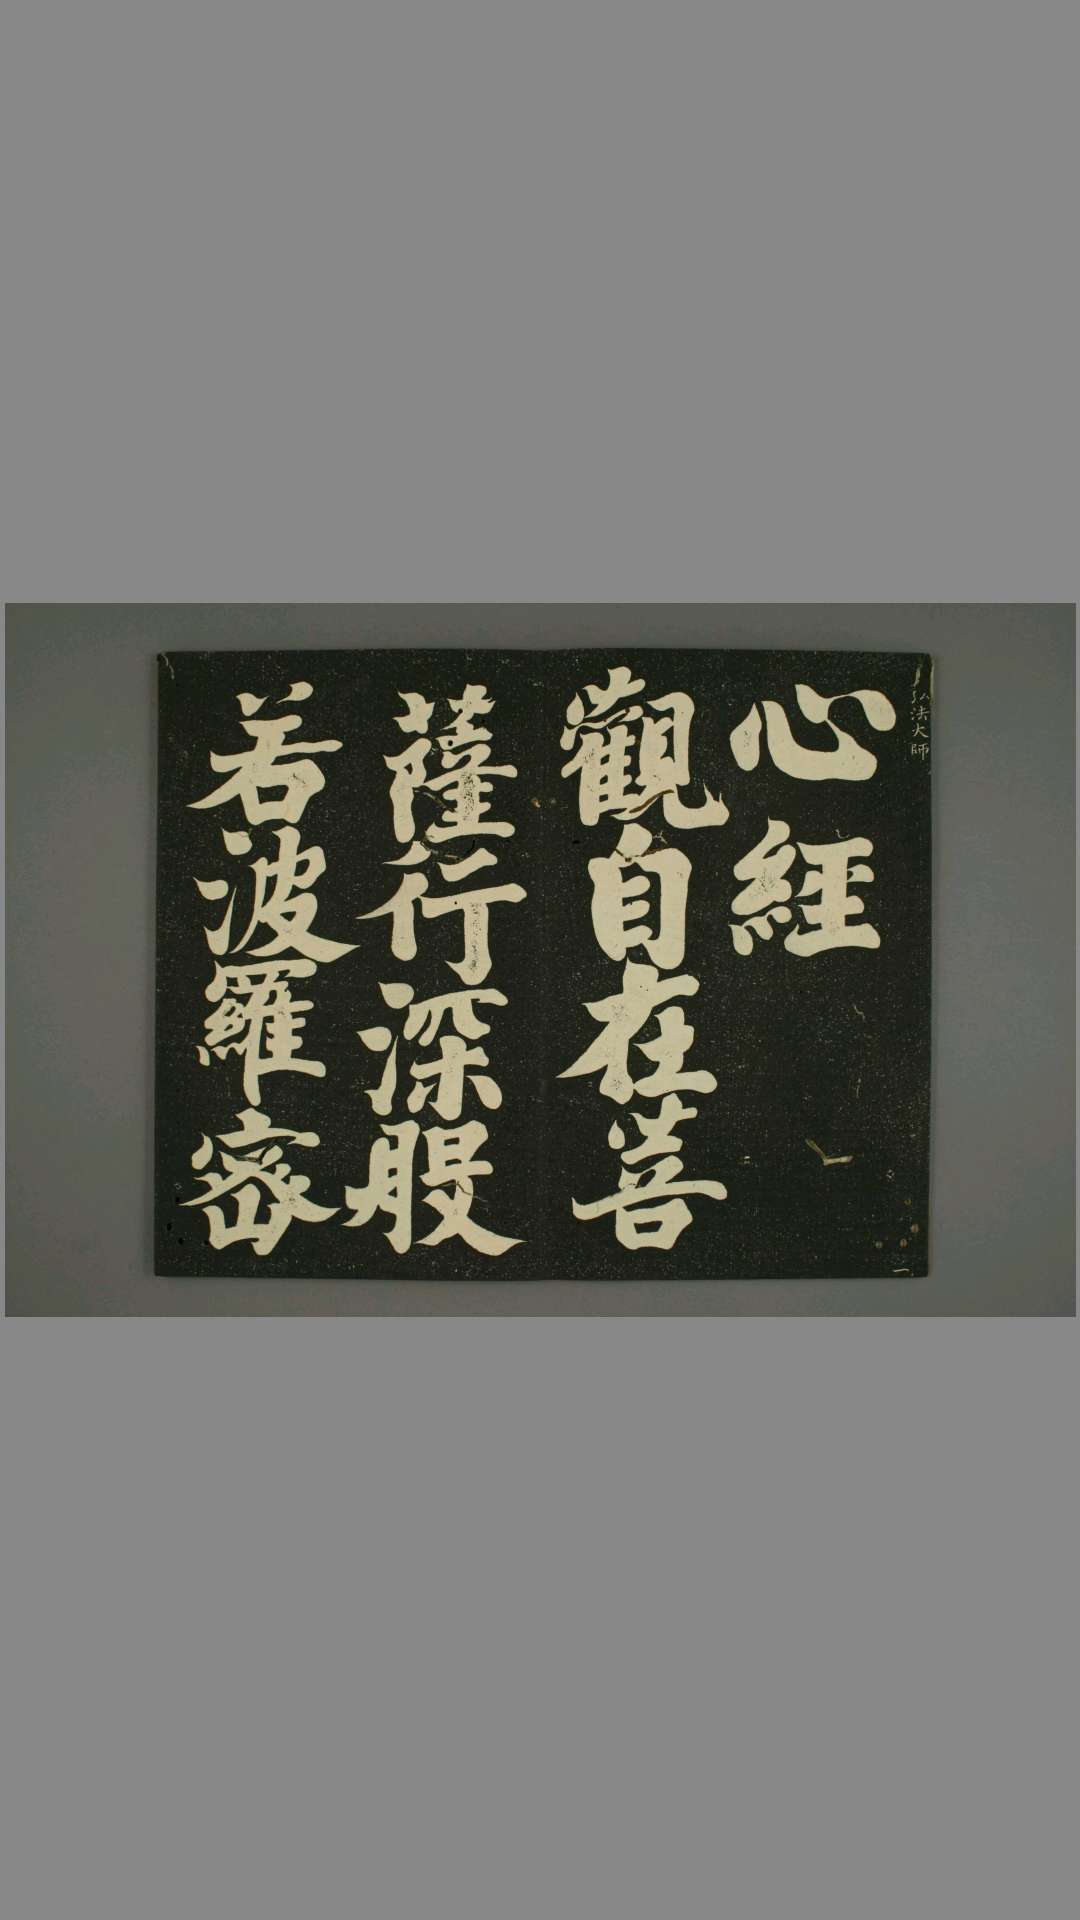 弘法大師
心經
觀自在菩
薩行深般
若波羅密
一